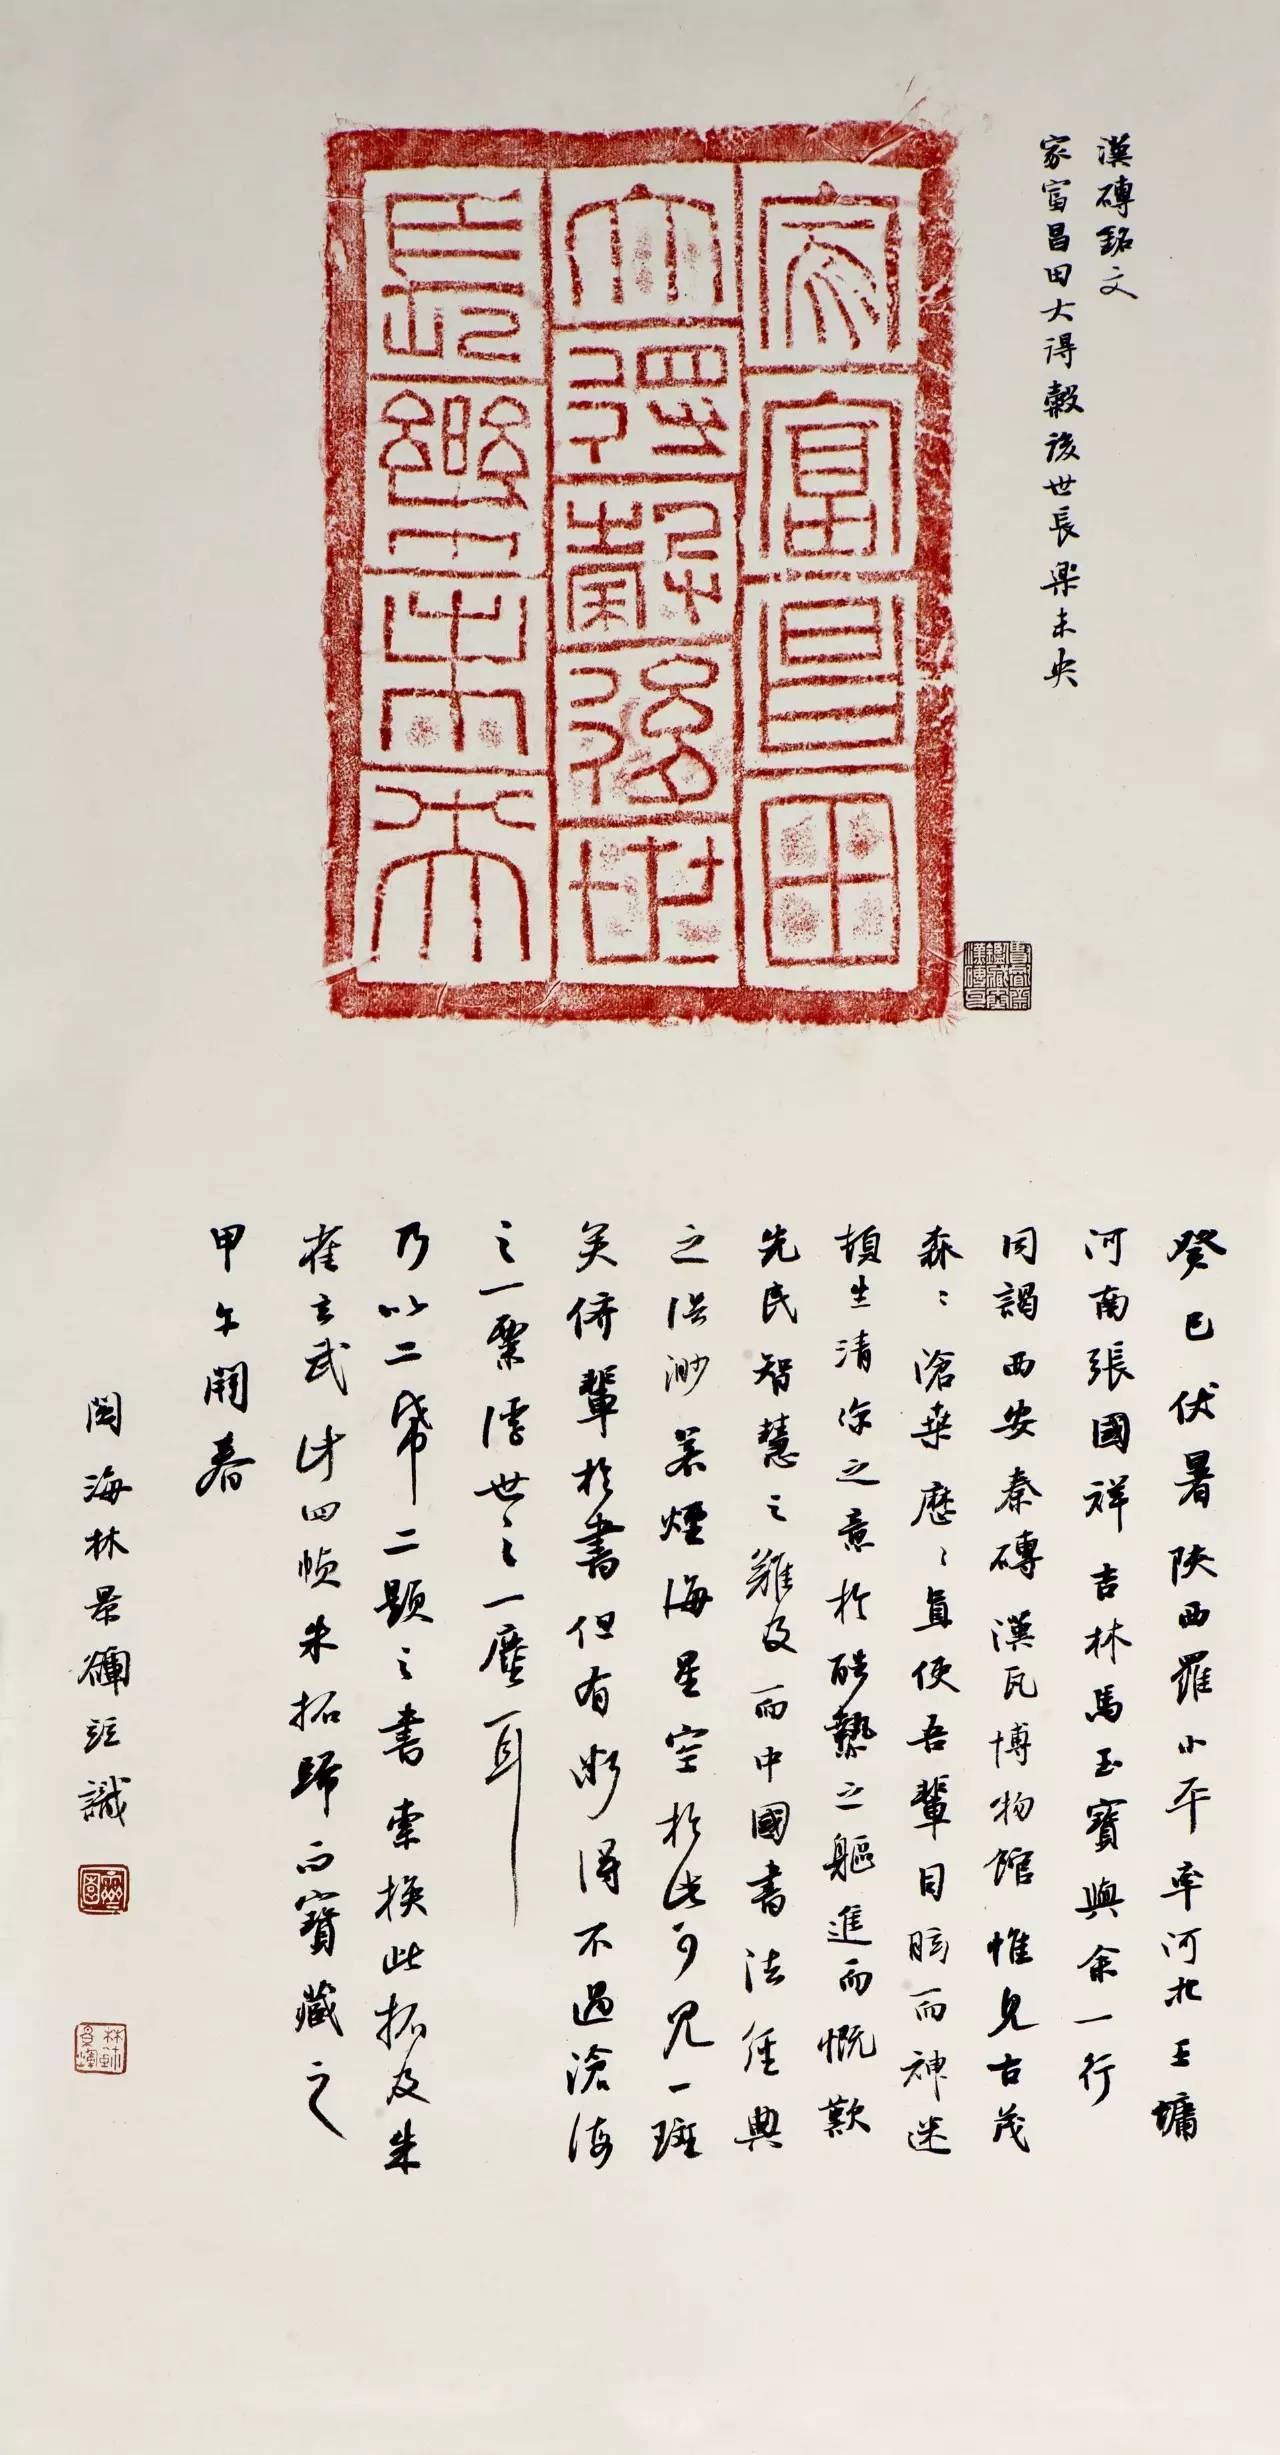 漢磚銘文
家富昌田大得穀後世長樂未央
家富昌田
大得穀後世
長樂未央
癸巳伏暑陝西羅小平率河北王墉
河南張國祥吉林馬玉寶與余一行
同謁西安秦磚漢瓦博物館惟見古茂
森〻滄桑歷〻真使吾輩目眩而神迷
頓生清涼之意於酷熱之軀進而慨歎
先民智慧之難及而中國書法經典
之浩渺若煙海星空於此可見一斑
矣儕輩於書但有所得不過滄海
之一粟浮世之一塵耳
乃以二幣二題之書索換此拓及朱
雀玄武等四幀朱拓歸而寶藏之
甲午開春
闊海林景輝跋識